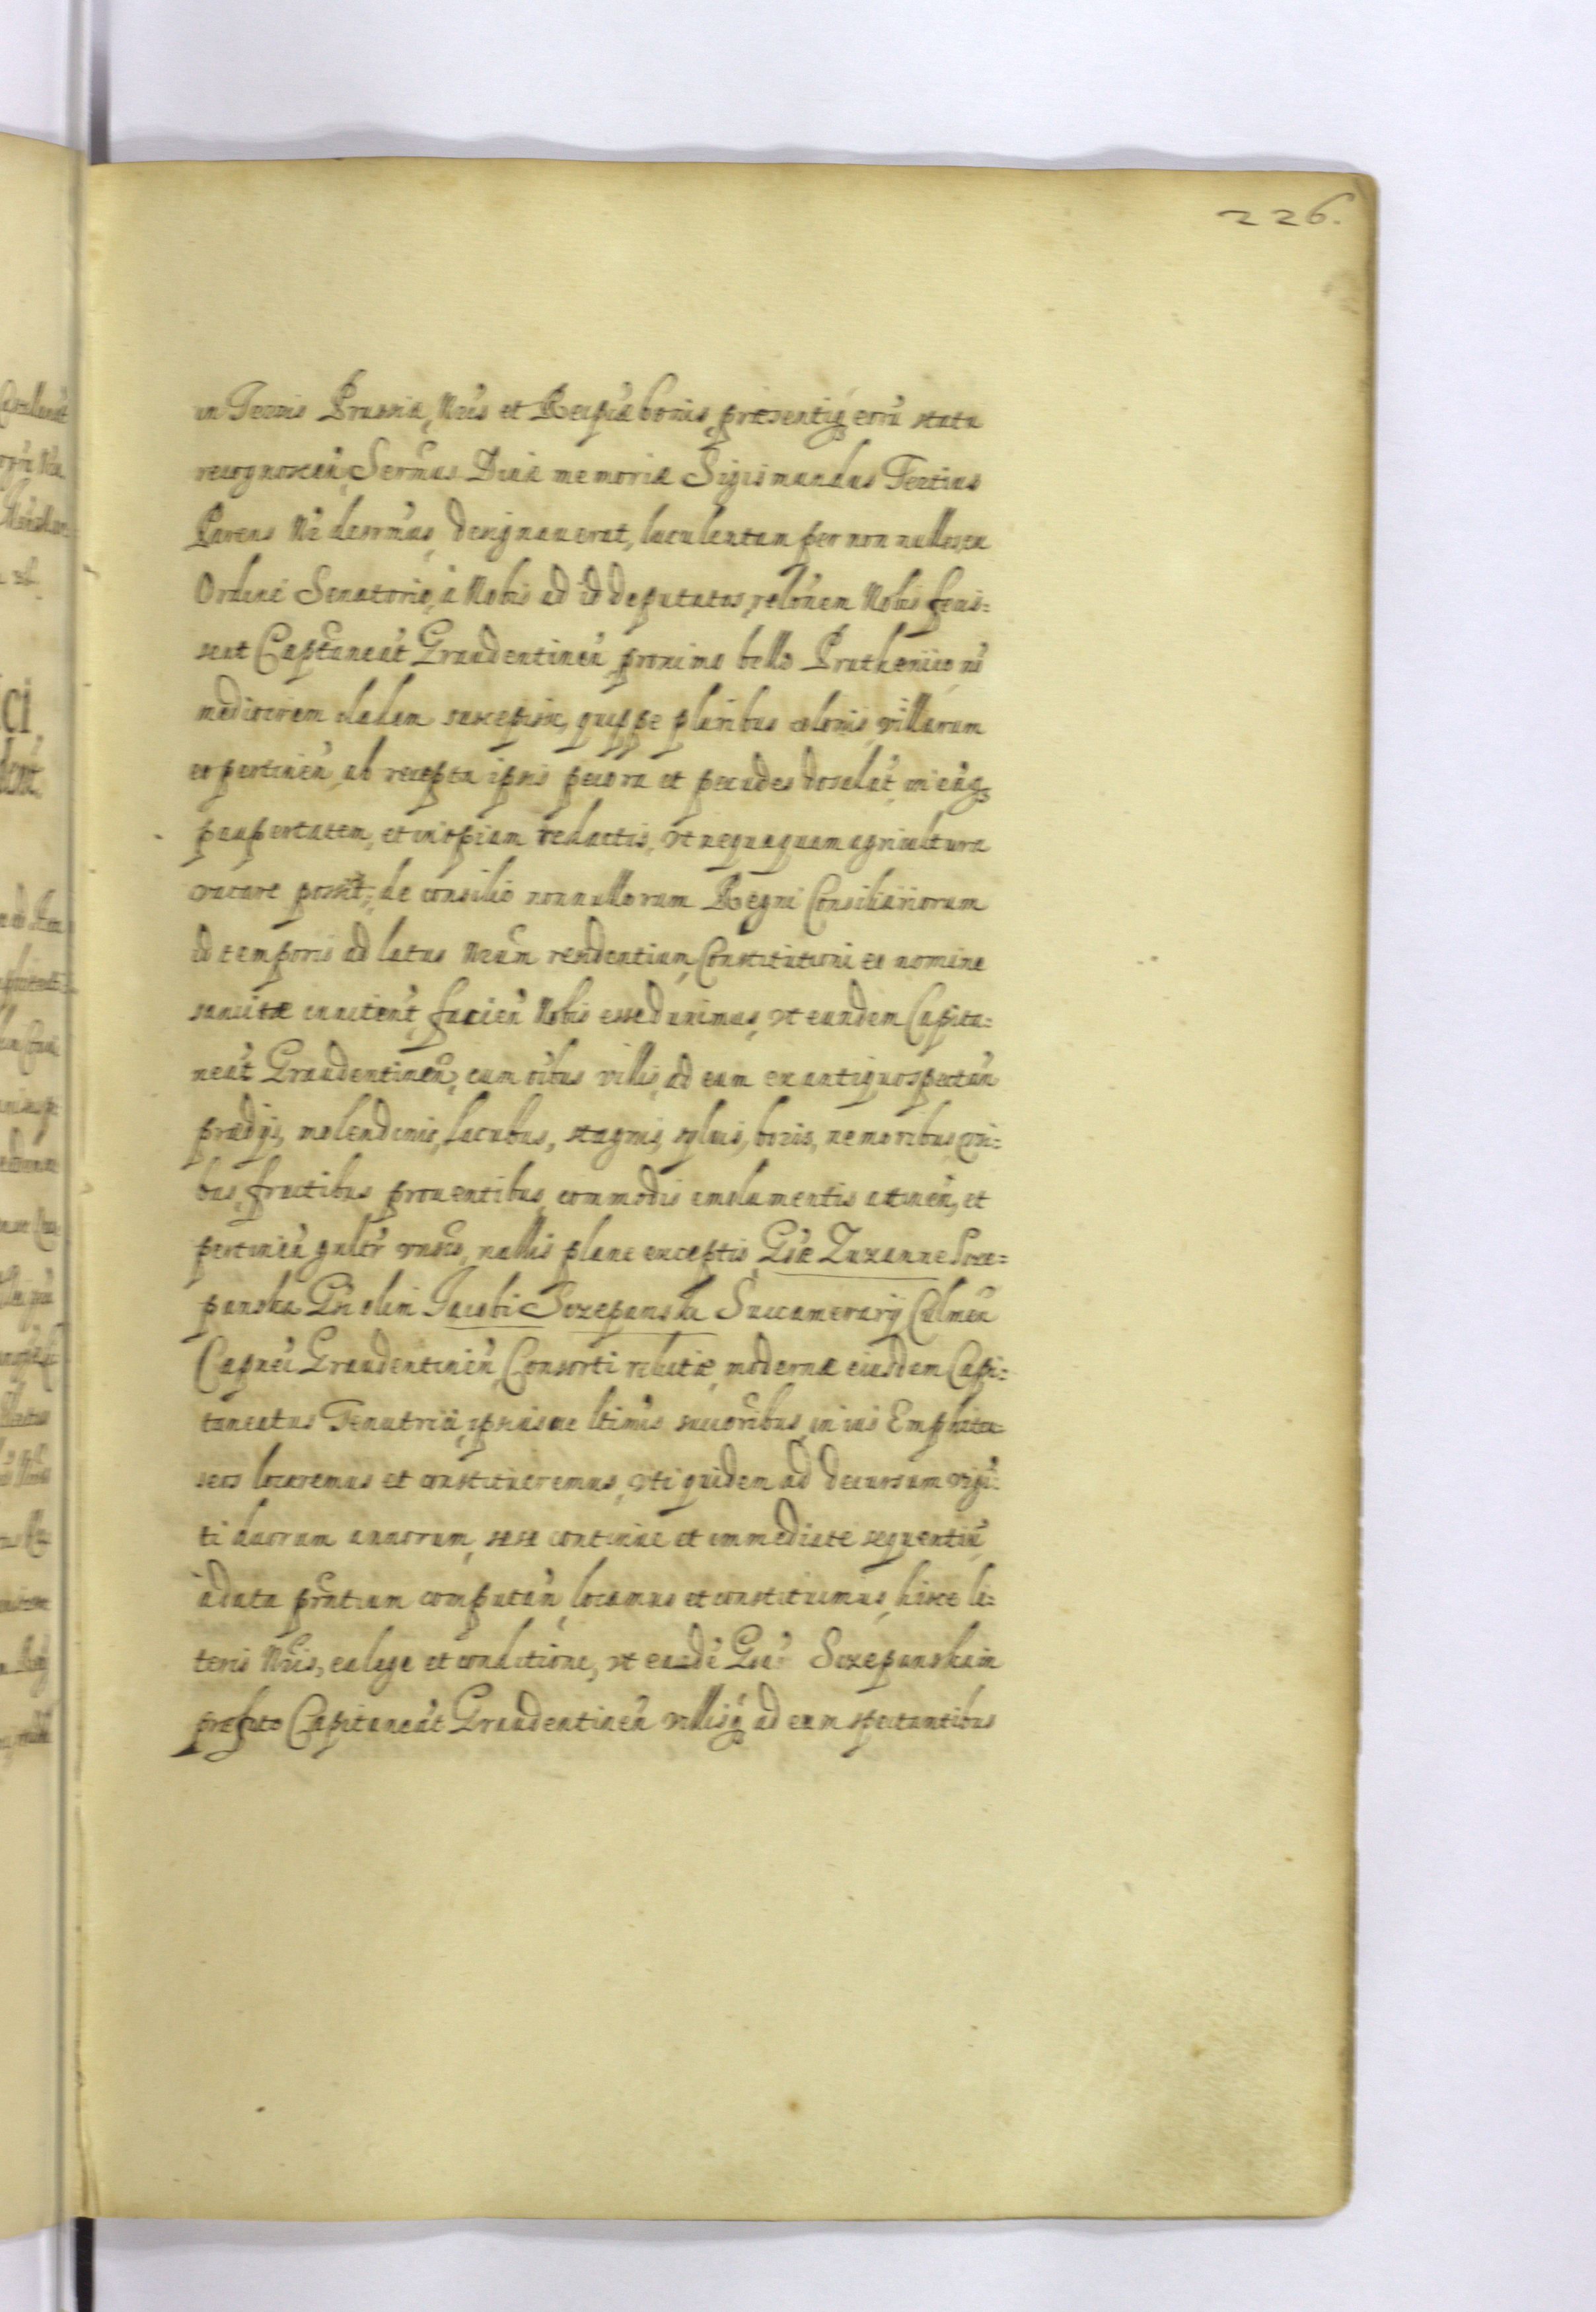 226.
in Terris Prussiæ, Nris et Reipcæ bonis, præsentiq₃ eorũ statu
recognoscen̄, Serm̃us Diuæ memoriæ Sigismundus Tertius
Parens Nr̃ desrm̃us, designauerat, luculentam per non nullos ex
Ordine Senatorio, à Nobis ad id deputatos, relõnem Nobis fecis=
sent Capt̃aneat̃ Graudentinen̄, proximo bello Pruthenico nõ
mediocrem cladem suscepisse, quippe pluribus colonis, villarum
eo pertinen̄, ob recepta ipsis pecora et pecudes desolat̃, in eãq₃
paupertatem, et inopiam redactis, vt nequaquam agriculturæ
vacare possĩt; de consilio nonnullorum Regni Consiliariorum
id temporis ad latus Nrũm residentium, Constitutioni eo nomine
sancitæ innitent̃, facien̄ Nobis esse duximus, vt eundem Capita=
neat̃ Graudentinen̄, cum õibus villis, ad eum ex antiquo spectan̄
prædijs, molendinis, lacubus, stagnis, syluis, boris, nemoribus, õni=
bus, fructibus prouentibus, commodis emolumentis attinen̄, et
pertinen̄ gnltr̃ vnsis, nullis plane exceptis, Gsæ Zuzannæ Szcze=
panska Gsi olim Jacobi Szczepanski Succamerarij Culmen̄
Capnei Graudentinen̄, Consorti relictæ, modernæ eiusdem Capi=
taneatus Tenutrici, ipsiusue ltimis succõribus, in ius Emphiteu=
seos locaremus et constitueremus, vti quidem ad decursum vigĩ=
ti duorum annorum, sese continue et immediate sequentiũ
à data pr̃ntium computan̄, locamus et constituimus, hisce li=
teris Nris, ea lege et conditione, vt eadẽ Gsa Szczepanska in
præfato Capitaneat̃ Graudentinen̄ villisq₃ ad eum spectantibus